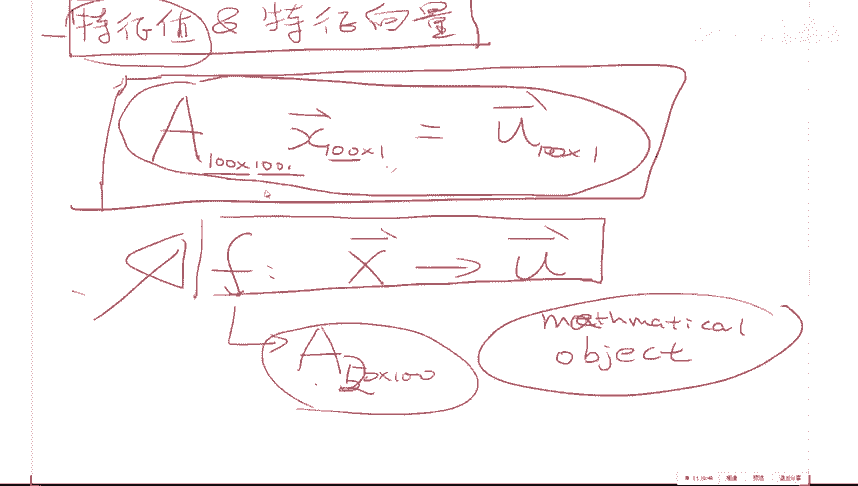 特征值 & 特征向量
A₁₀₀ₓ₁₀₀ x⃗₁₀₀ₓ₁ = u⃗₁₀₀ₓ₁
f: x⃗ → u⃗
mathmatical
object